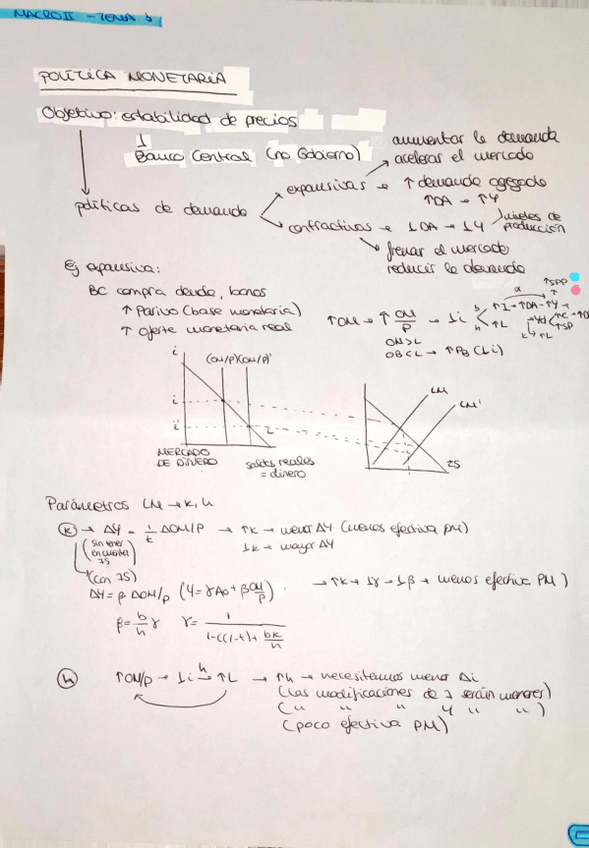 MACRO II - TEMA 3
POLÍTICA MONETARIA
Objetivo: estabilidad de precios
↓
Banco Central (no Gobierno)
aumentar la demanda
acelerar el mercado
políticas de demanda
expansivas → ↑ demanda agregada
↑DA → ↑Y
contractivas → ↓DA → ↓Y
niveles de producción
frenar el mercado
reducir la demanda
Ej expansiva:
BC compra deuda, bonos
↑ Pasivo (base monetaria)
↑ oferta monetaria real
↑OM → ↑ OM/P → ↓i
b ↑I → ↑DA → ↑Y
α
↑SPP
h ↑L
↑Yd
↑C → ↑DA
↑SP
k → ↑L
OM > L
OB < L → ↑PB (↓i)
i (OM/P) (OM/P)'
i
i'
L
MERCADO
DE DINERO
saldos reales
= dinero
LM
LM'
IS
Parámetros LM → k, h
(k) → ΔY = 1/k ΔOM/P → ↑k → menor ΔY (menos efectiva PM)
↓k → mayor ΔY
(sin tener en cuenta IS)
(con IS)
ΔY = β ΔOM/P (Y = γA0 + β OM/P) → ↑k → ↓γ → ↓β → menos efectiva PM)
β = b/h γ γ = 1 / 1-c(1-t)+ bk/h
(h) ↑OM/P → ↓i h→ ↑L → ↑h → necesitamos menor Δi
(las modificaciones de I serán menores)
(" " " Y " ")
(poco efectiva PM)